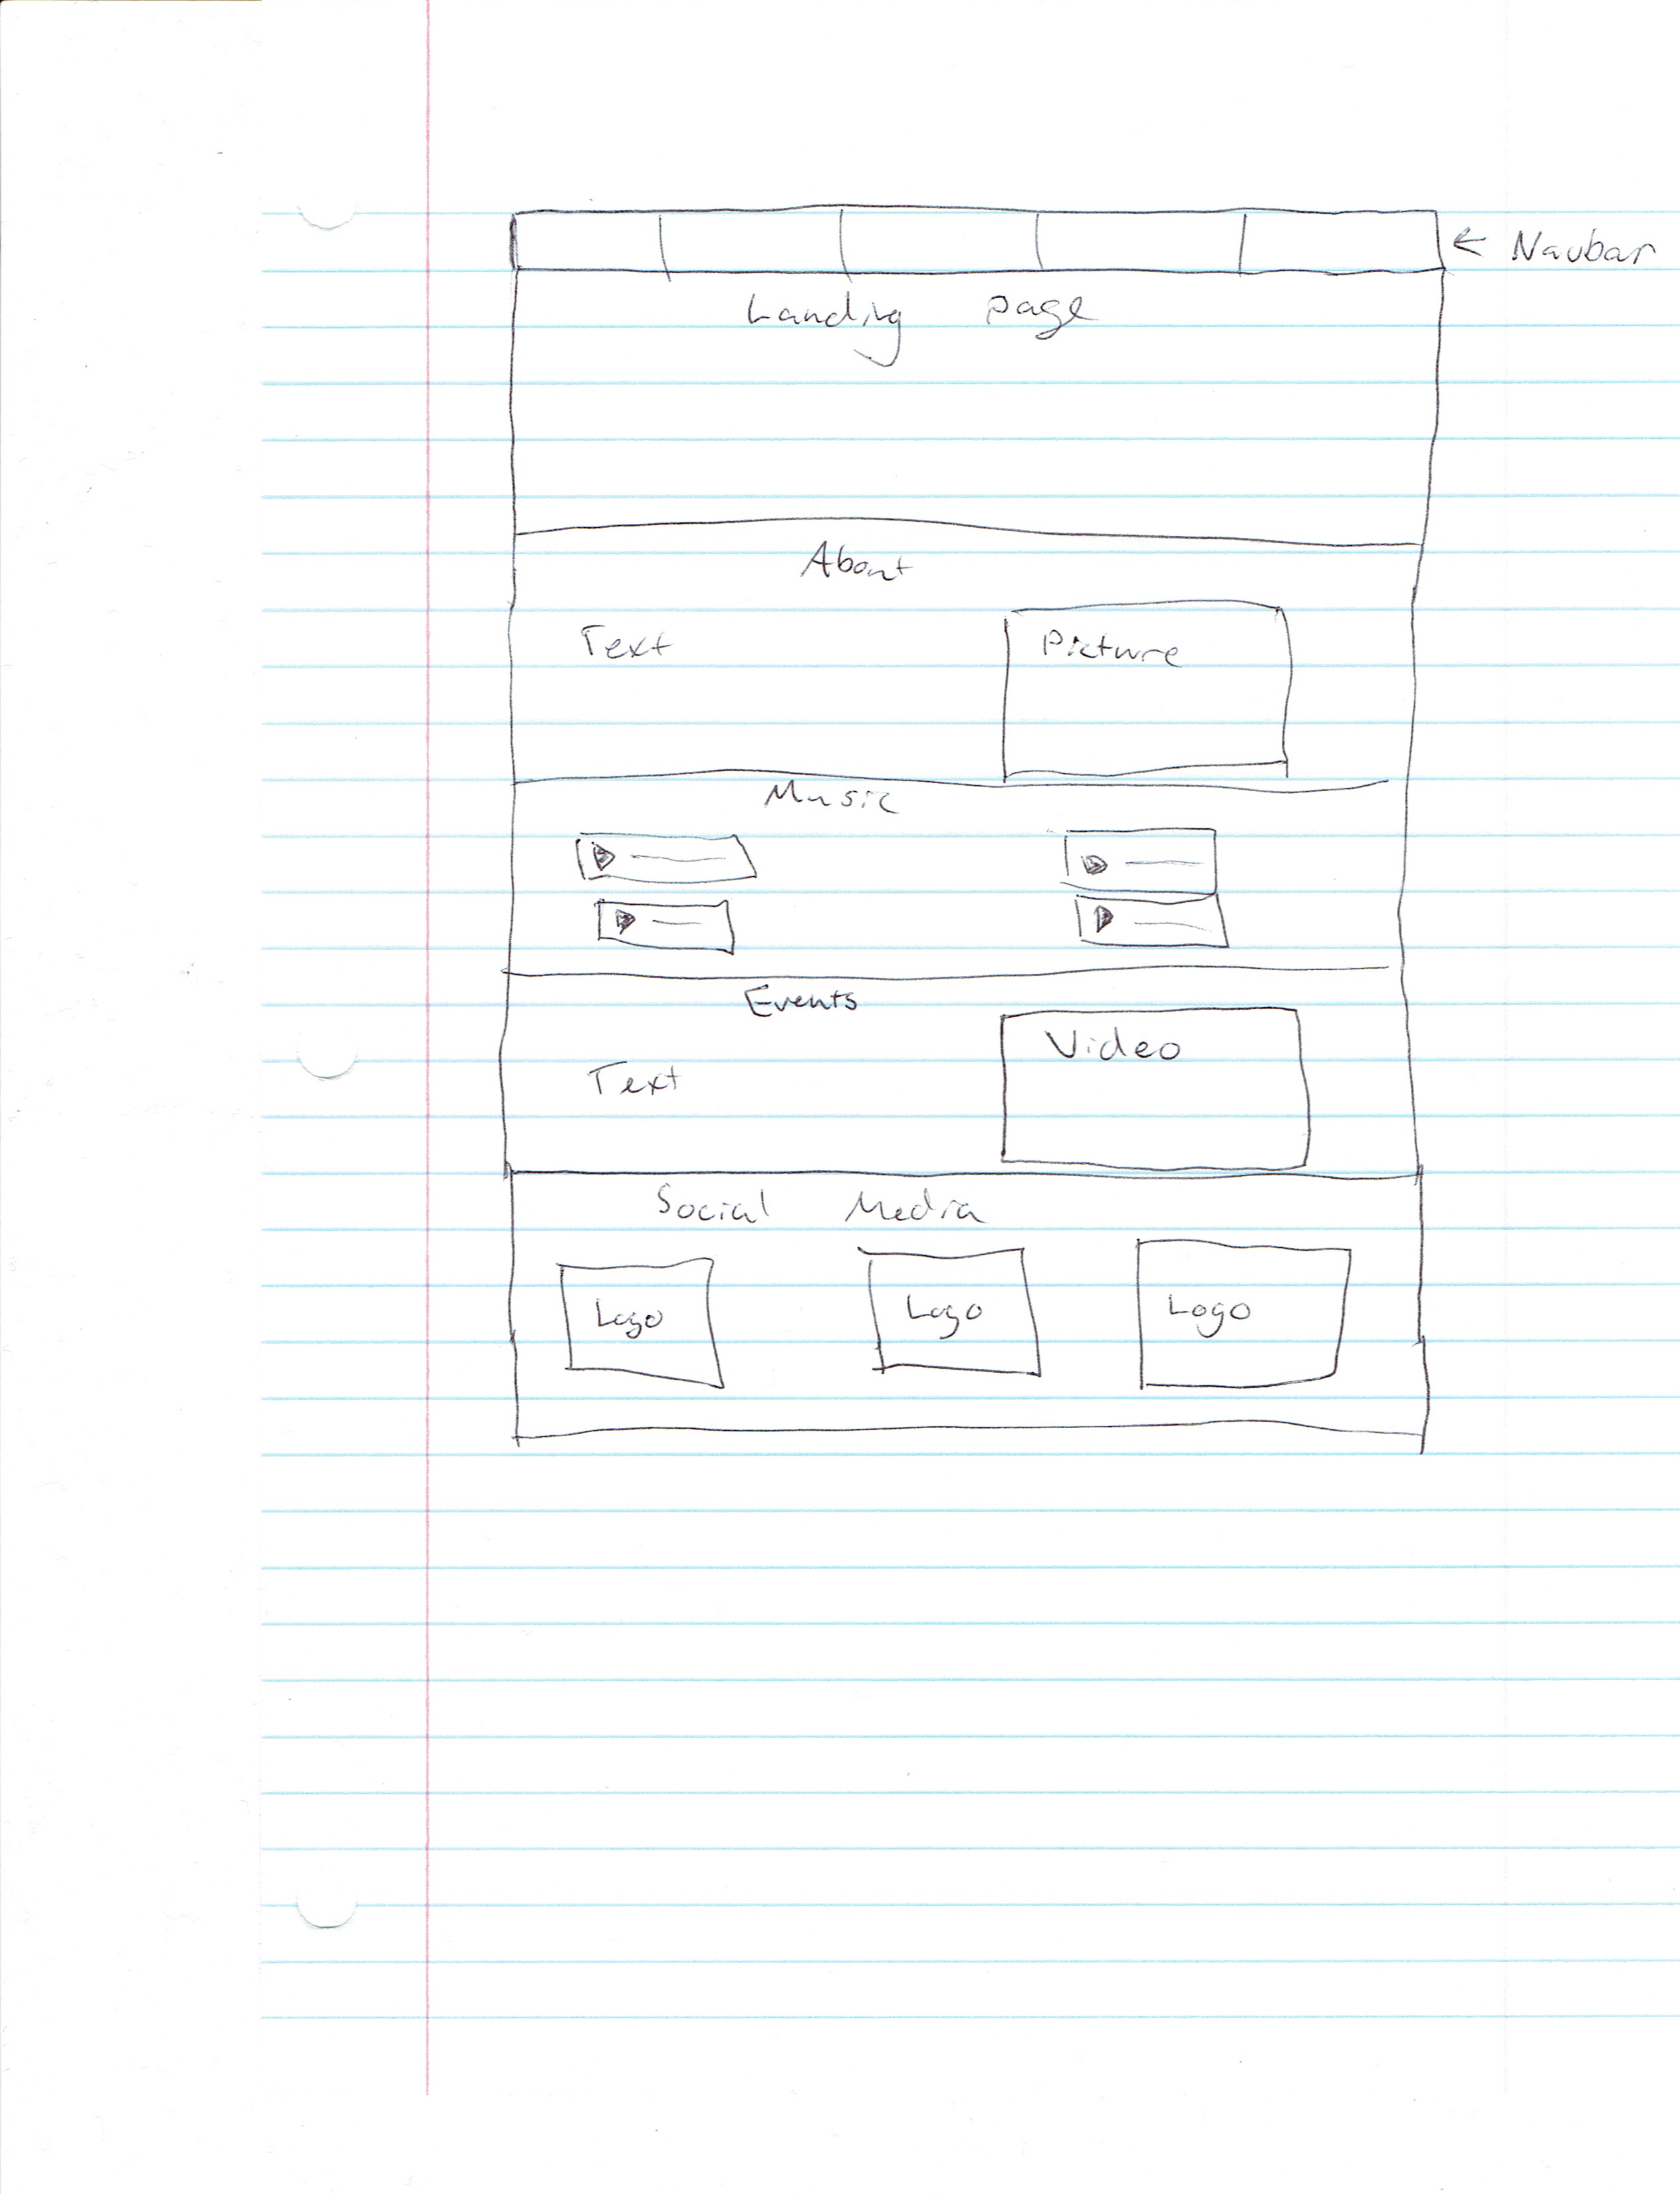 ← Navbar
Landing page
About
Text
Picture
Music
Events
Video
Text
Social Media
Logo Logo Logo